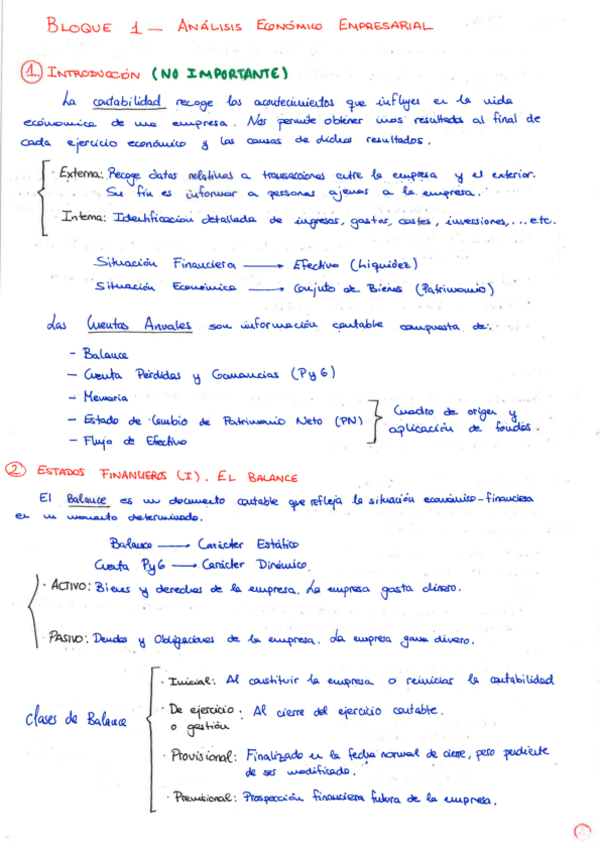 BLOQUE 1 — ANÁLISIS ECONÓMICO EMPRESARIAL
1. INTRODUCCIÓN (NO IMPORTANTE)
La contabilidad recoge los acontecimientos que influyen en la vida
económica de una empresa. Nos permite obtener unos resultados al final de
cada ejercicio económico y las causas de dichos resultados.
· Externa: Recoge datos relativas a transacciones entre la empresa y el exterior.
Su fin es informar a personas ajenas a la empresa.
· Interna: Identificación detallada de ingresos, gastos, costes, inversiones,... etc.
Situación Financiera → Efectivo (Liquidez)
Situación Económica → Conjuto de Bienes (Patrimonio)
Las Cuentas Anuales son información contable compuesta de:
- Balance
- Cuenta Pérdidas y Ganancias (PyG)
- Memoria
- Estado de Cambio de Patrimonio Neto (PN)
- Flujo de Efectivo
Cuadro de origen y
aplicación de fondos.
2. ESTADOS FINANCIEROS (I). EL BALANCE
El Balance es un documento contable que refleja la situación económico-financiera
en un momento determinado.
Balance → Carácter Estático
Cuenta PyG → Carácter Dinámico.
· ACTIVO: Bienes y derechos de la empresa. La empresa gasta dinero.
· PASIVO: Deudas y Obligaciones de la empresa. La empresa gana dinero.
Clases de Balance
· Inicial: Al constituir la empresa o reiniciar la contabilidad
· De ejercicio: Al cierre del ejercicio contable.
o gestión
· Provisional: Finalizado en la fecha normal de cierre, pero pendiente
de ser modificado.
· Previsional: Prospección financiera futura de la empresa.